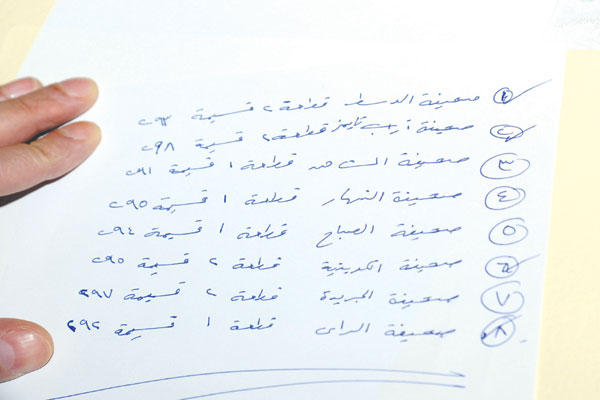 ١ صحيفة الوسط قطعة ٢ قسيمة ٢٩٣
٢ صحيفة عرب تايمز قطعة ٢ قسيمة ٢٩٨
٣ صحيفة الشاهد قطعة ١ قسيمة ٢٩١
٤ صحيفة النهار قطعة ١ قسيمة ٢٩٥
٥ صحيفة الصباح قطعة ١ قسيمة ٢٩٤
صحيفة الكويتية قطعة ٢ قسيمة ٢٩٥
٧ صحيفة الجريدة قطعة ٢ قسيمة ٢٩٧
٨ صحيفة الراى قطعة ١ قسيمة ٢٩٢